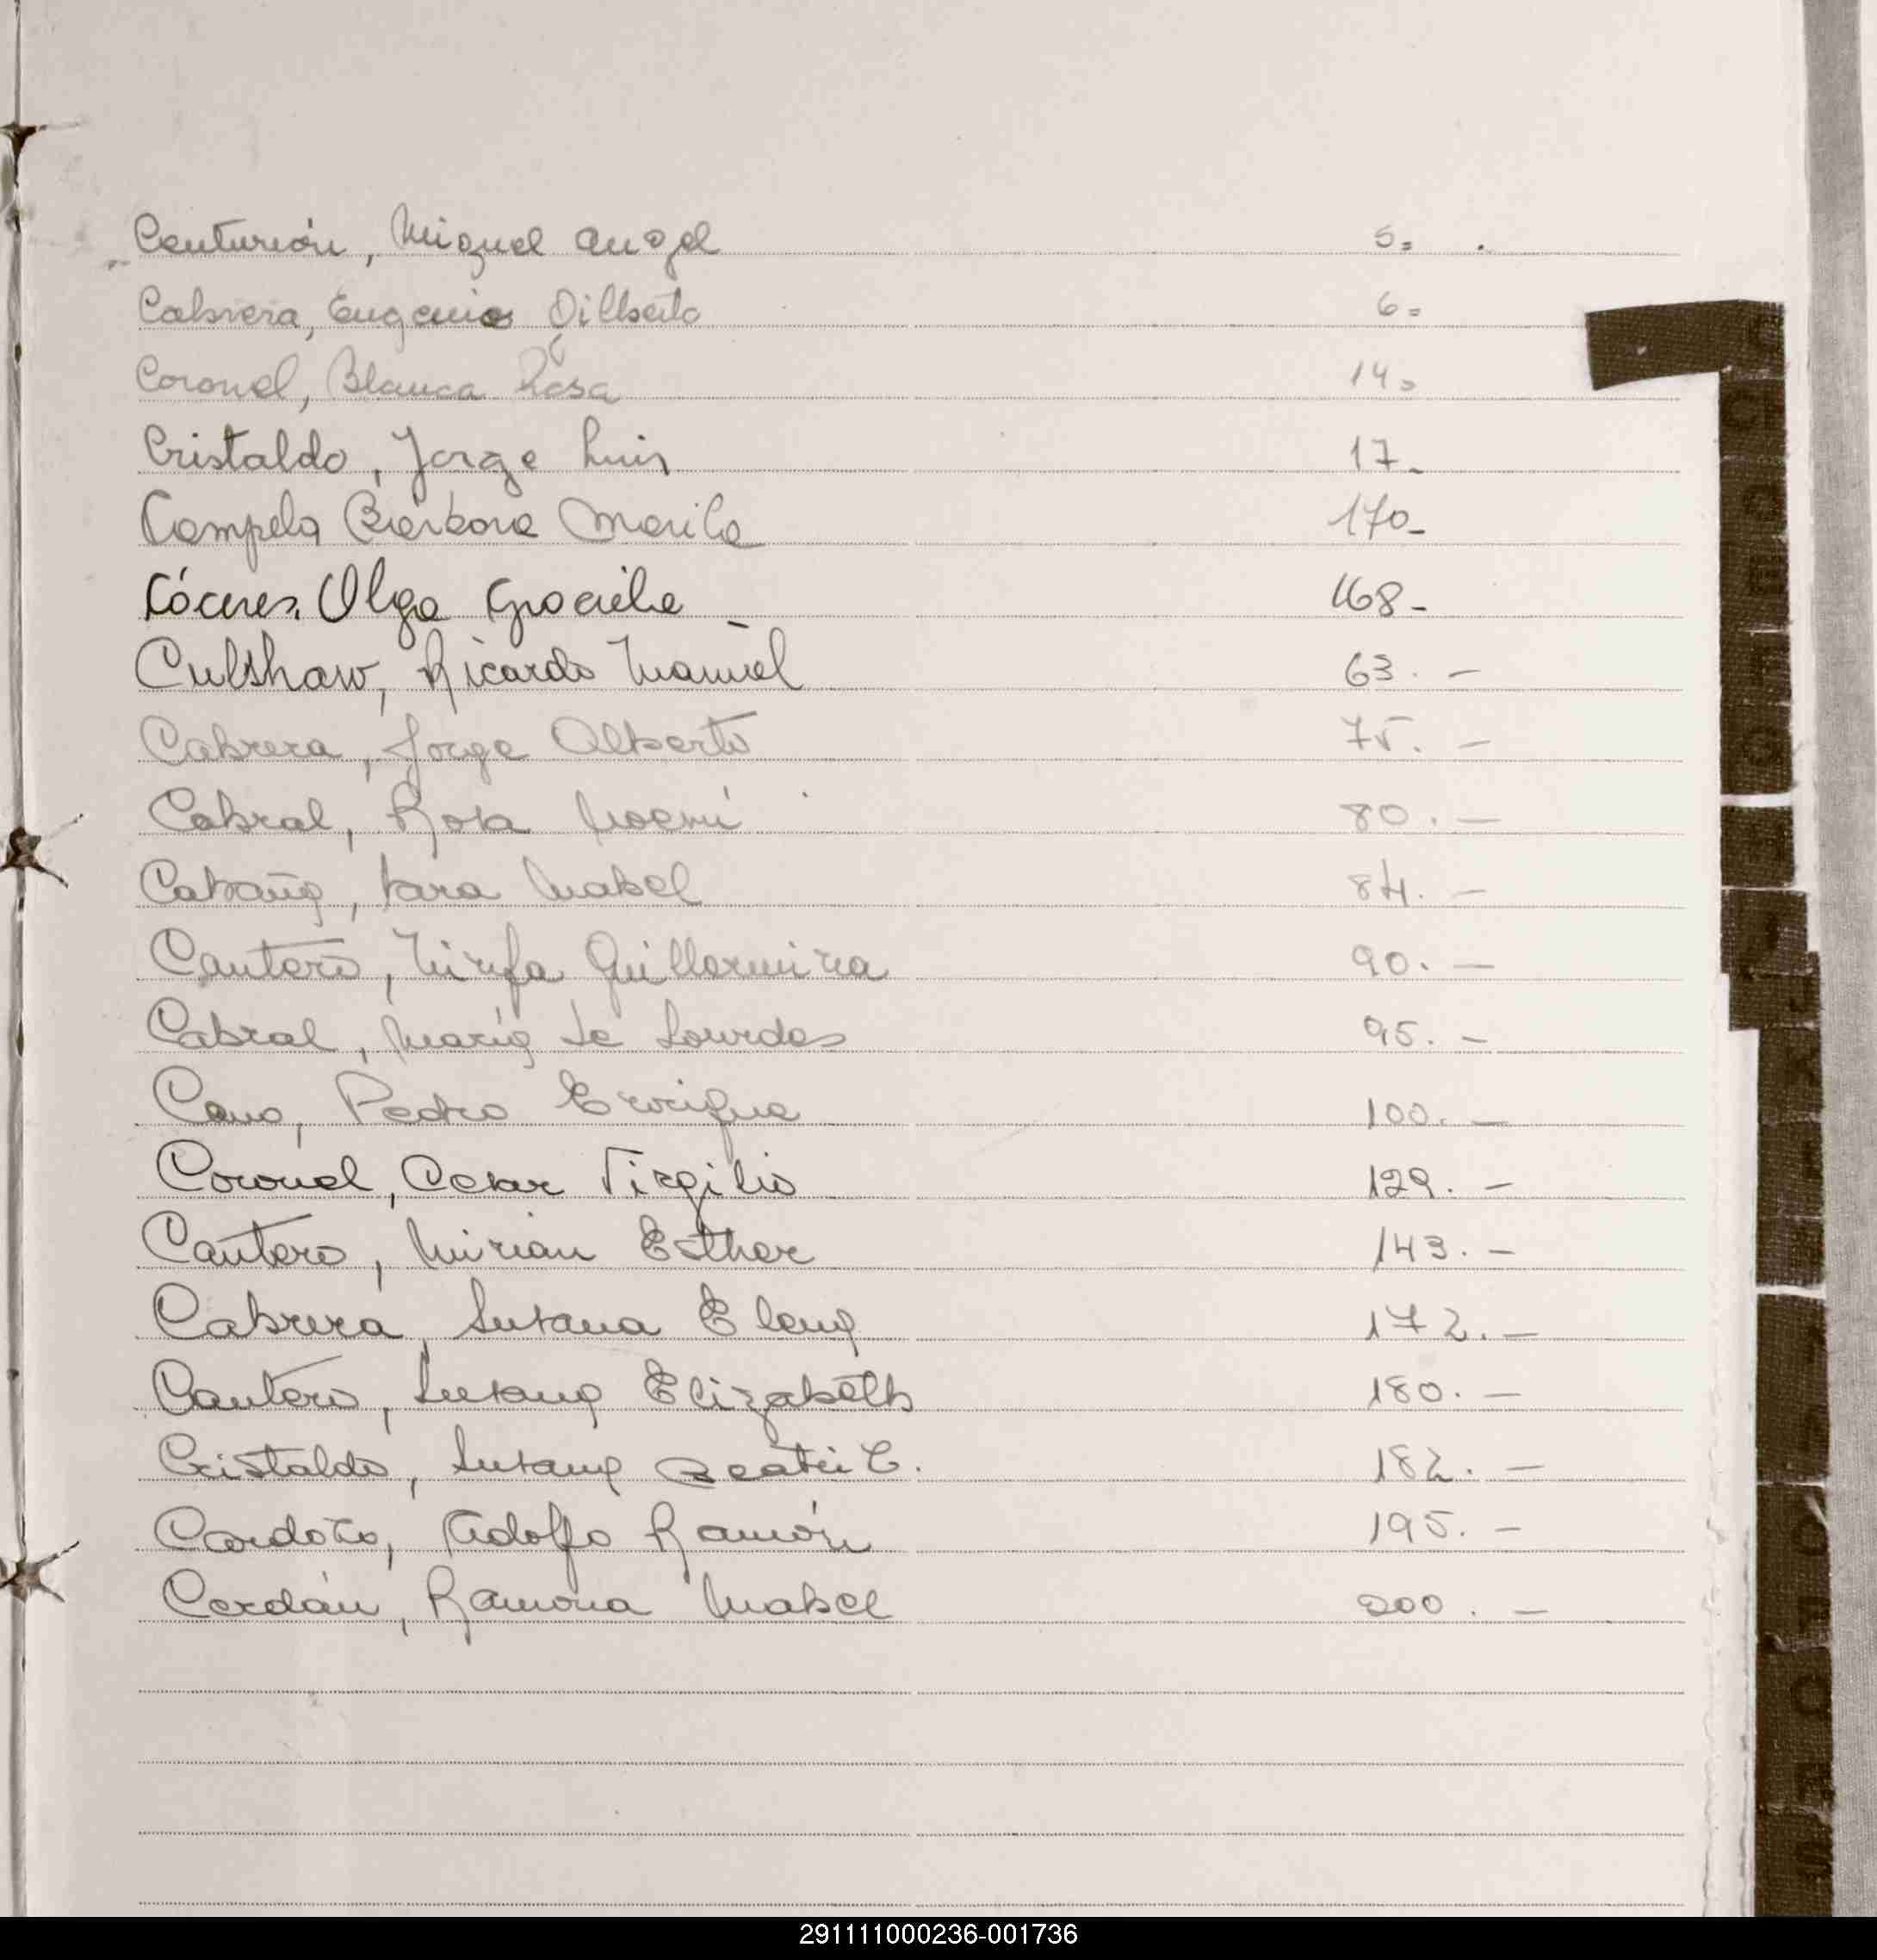 Centurión, Miguel Angel 5=
Cabrera, Eugenio Gilberto 6=
Coronel, Blanca Rosa 14=
Cristaldo, Jorge Luis 17-
Campelo Bárbara Marila 170-
Cáceres, Olga Graciela 168-
Culshaw, Ricardo Manuel 63. -
Cabrera, Jorge Alberto 75. -
Cabral, Rosa Noemí 80. -
Cabaña, Sara Mabel 84. -
Cantero, Ninfa Guillermina 90. -
Cabral, María de Lourdes 95. -
Cano, Pedro Enrique 100. -
Coronel, Cesar Virgilio 129. -
Cantero, Mirian Esther 143. -
Cabrera, Susana Elena 172. -
Cantero, Susana Elizabeth 180. -
Cristaldo, Susana Beatriz C. 182. -
Cardozo, Adolfo Ramón 195. -
Cerdán, Ramona Mabel 200. -
291111000236-001736